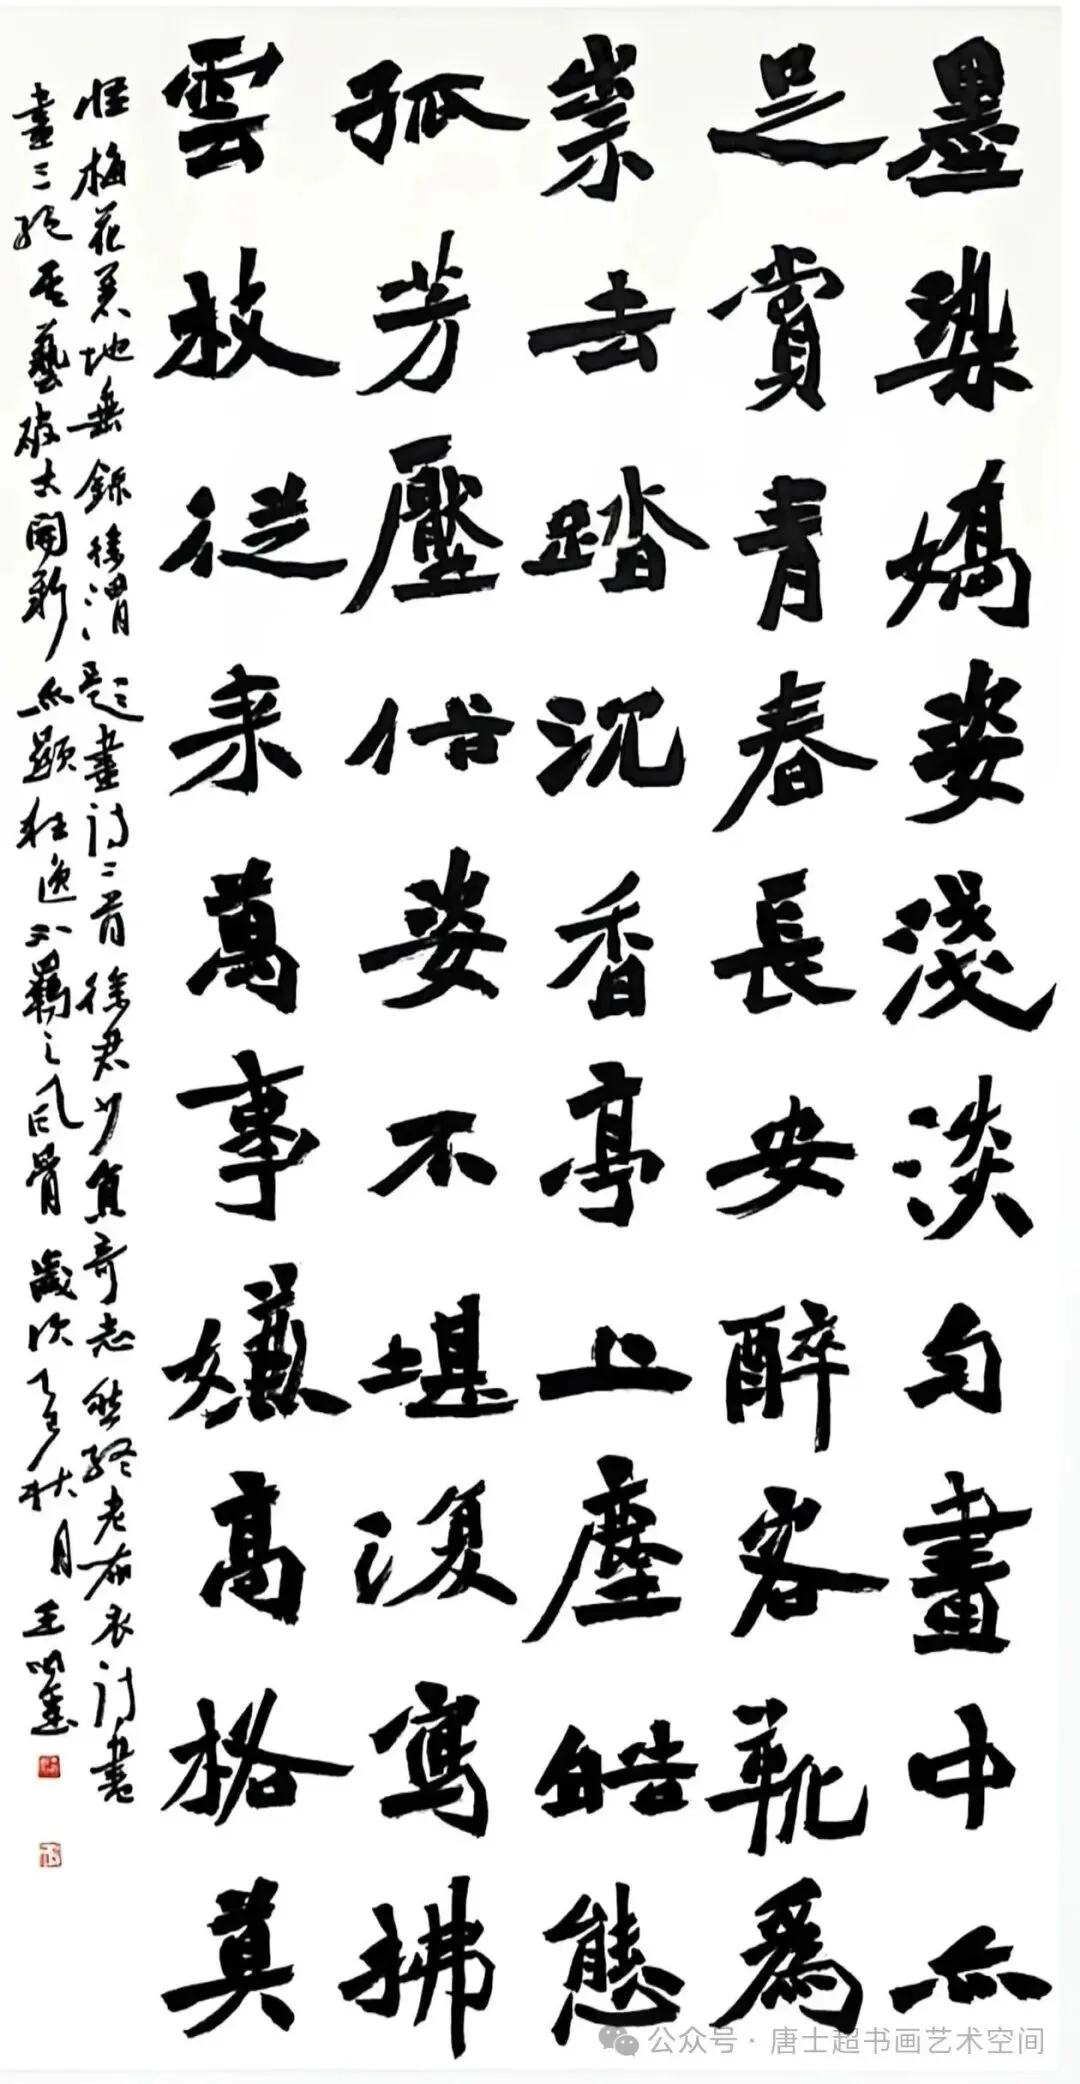 墨染嬌姿淺淡勻畫中亦
足賞青春長安醉客靴為
祟去踏沉香亭上塵皓態
孤芳壓俗姿不堪復寫拂
雲枝從來萬事嫌高格莫
怪梅花著地垂錄徐渭題畫詩二首徐君少負奇志然終老布衣詩書
畫三絕其藝破古開新亦顯狂逸不羈之風骨歲次乙巳秋月王
公众号·唐士超书画艺术空间